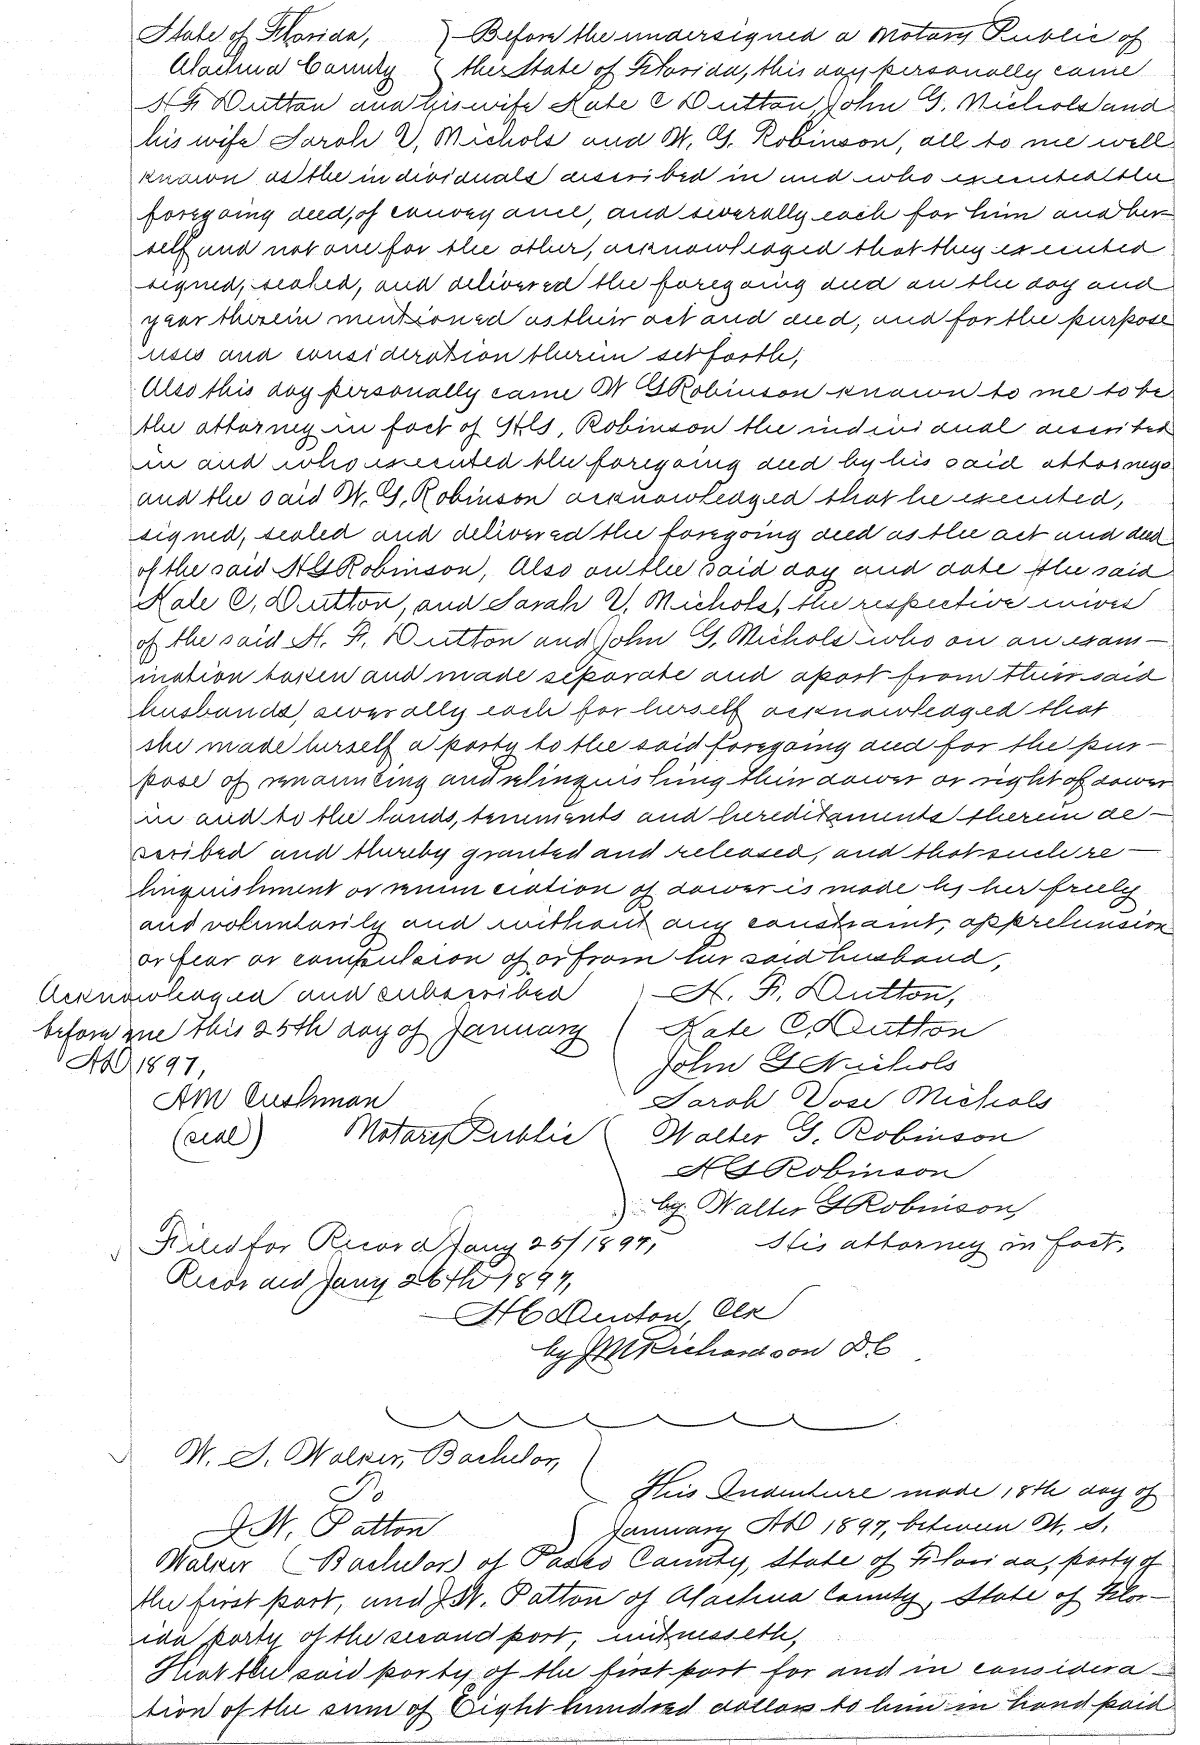 State of Florida, } Before the undersigned a Notary Public of
Alachua County } the State of Florida, this day personally came
H F Dutton and his wife Kate C Dutton, John G. Nichols and
his wife Sarah V, Nichols and W. G. Robinson, all to me well
known as the individuals described in and who executed the
foregoing deed, of conveyance, and severally each for him and her
self and not one for the other, acknowledged that they executed
signed, sealed, and delivered the foregoing deed on the day and
year therein mentioned as their act and deed, and for the purpose
uses and consideration therein set forth,
Also this day personally came W G Robinson known to me to be
the attorney in fact of H G, Robinson the individual described
in and who executed the foregoing deed by his said attorney
and the said W. G. Robinson acknowledged that he executed,
signed, sealed and delivered the foregoing deed as the act and deed
of the said H G Robinson, Also on the said day and date the said
Kate C, Dutton, and Sarah V, Nichols, the respective wives
of the said H. F. Dutton and John G, Nichols who on an exam-
ination taken and made separate and apart from their said
husbands, severally each for herself acknowledged that
she made herself a party to the said foregoing deed for the pur-
pose of renouncing and relinquishing their dower or right of dower
in and to the lands, tenements and hereditaments therein de-
scribed and thereby granted and released, and that such re-
linquishment or renunciation of dower is made by her freely
and voluntarily and without any constraint, apprehension
or fear or compulsion of or from her said husband,
Acknowledged and subscribed } H. F. Dutton,
before me this 25th day of January ( Kate C, Dutton
AD 1897, John G Nichols
AM Cushman Sarah Vose Nichols
(seal) Notary Public ( Walter G. Robinson
H G Robinson
) by Walter G Robinson,
Filed for Record Jany 25/1897, His attorney in fact,
Recorded Jany 26th 1897,
H C Denton, Clk
by J M Richardson D C
W. S. Walker, Bachelor,
To This Indenture made 18th day of
J W. Patton ) January AD 1897, between W. S.
Walker (Bachelor) of Pasco County, State of Florida, party of
the first part, and J W. Patton of Alachua County, State of Flor-
ida party of the second part, witnesseth,
That the said party of the first part for and in considera-
tion of the sum of Eight hundred dollars to him in hand paid